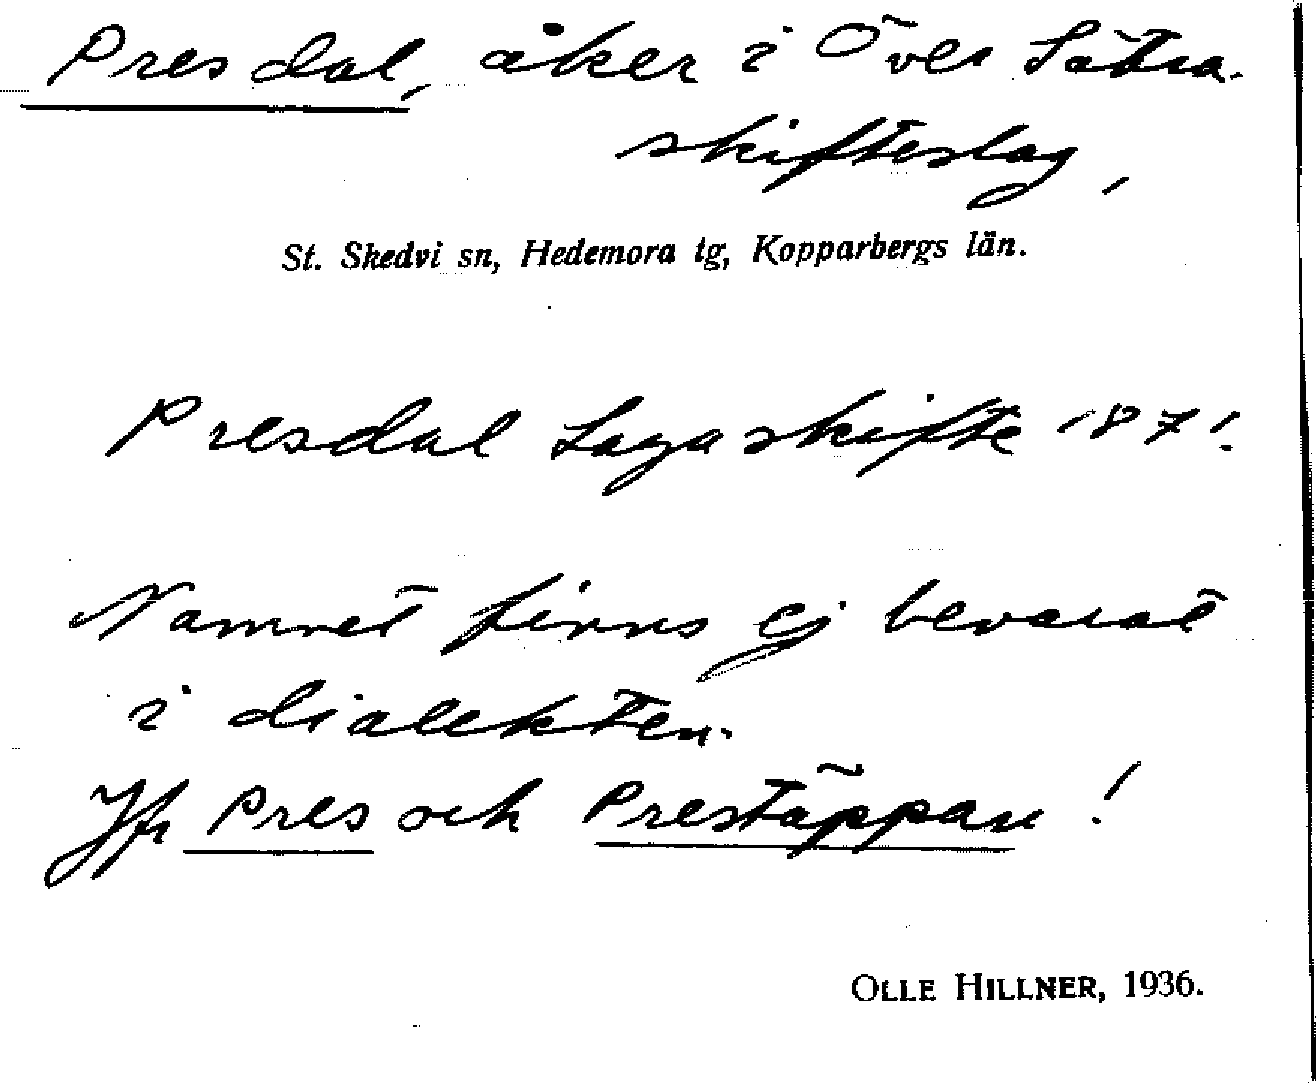 Presdal, åker i Över Sätra
skifteslag,
St. Skedvi sn, Hedemora tg, Kopparbergs län.
Presdal Laga skifte 1871.
Namnet finns ej bevarat
i dialekten.
Jfr Pres och Prestäppan!
OLLE HILLNER, 1936.